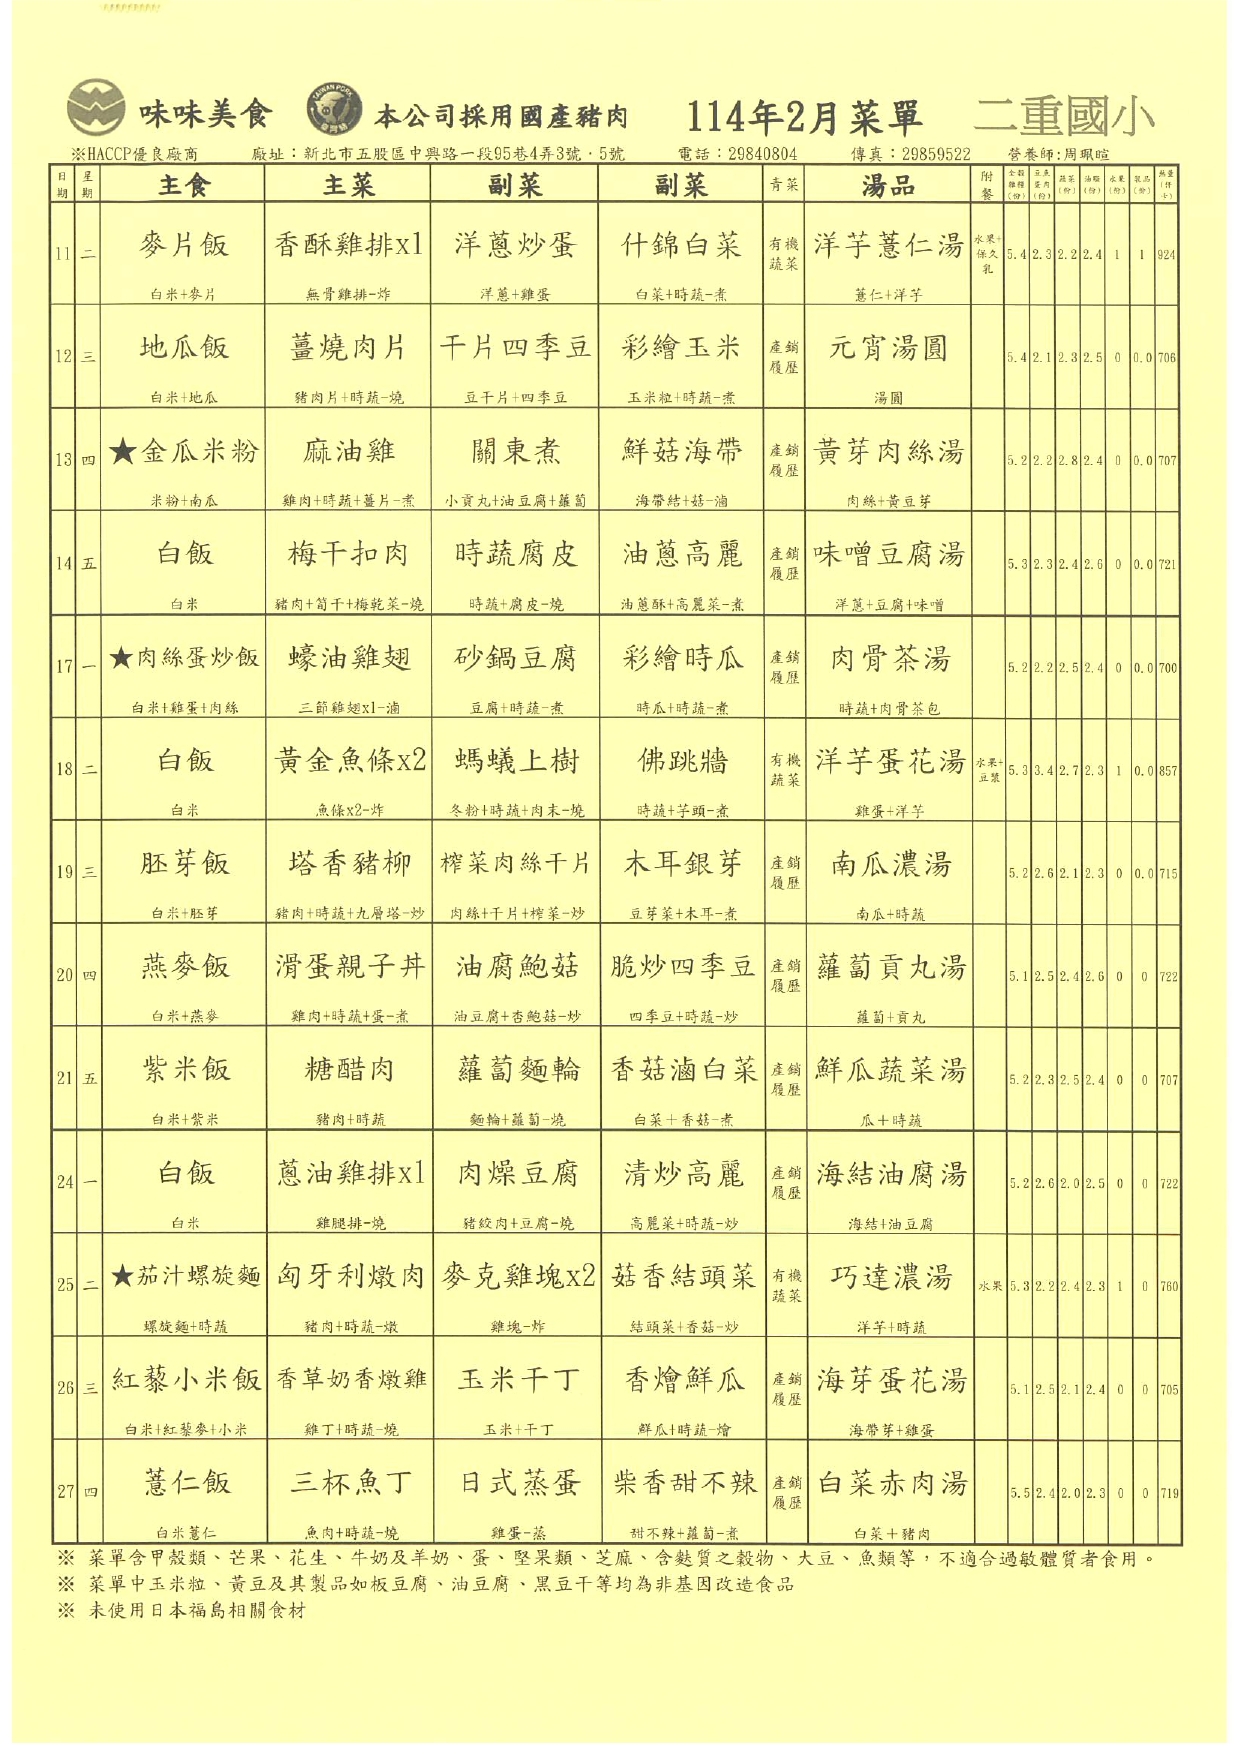 味味美食 TAIWAN PORK 臺灣豬 本公司採用國產豬肉 114年2月菜單 二重國小
※HACCP優良廠商 廠址：新北市五股區中興路一段95巷4弄3號．5號 電話：29840804 傳真：29859522 營養師:周珮暄
日期 星期 主食 主菜 副菜 副菜 青菜 湯品 附餐 全穀雜糧(份) 豆魚蛋肉(份) 蔬菜(份) 油脂(份) 水果(份) 乳品(份) 熱量(仟卡)
11 二 麥片飯 香酥雞排x1 洋蔥炒蛋 什錦白菜 有機蔬菜 洋芋薏仁湯 水果+保久乳 5.4 2.3 2.2 2.4 1 1 924
白米+麥片 無骨雞排-炸 洋蔥+雞蛋 白菜+時蔬-煮 薏仁+洋芋
12 三 地瓜飯 薑燒肉片 干片四季豆 彩繪玉米 產銷履歷 元宵湯圓 5.4 2.1 2.3 2.5 0 0.0 706
白米+地瓜 豬肉片+時蔬-燒 豆干片+四季豆 玉米粒+時蔬-煮 湯圓
13 四 ★金瓜米粉 麻油雞 關東煮 鮮菇海帶 產銷履歷 黃芽肉絲湯 5.2 2.2 2.8 2.4 0 0.0 707
米粉+南瓜 雞肉+時蔬+薑片-煮 小貢丸+油豆腐+蘿蔔 海帶結+菇-滷 肉絲+黃豆芽
14 五 白飯 梅干扣肉 時蔬腐皮 油蔥高麗 產銷履歷 味噌豆腐湯 5.3 2.3 2.4 2.6 0 0.0 721
白米 豬肉+筍干+梅乾菜-燒 時蔬+腐皮-燒 油蔥酥+高麗菜-煮 洋蔥+豆腐+味噌
17 一 ★肉絲蛋炒飯 蠔油雞翅 砂鍋豆腐 彩繪時瓜 產銷履歷 肉骨茶湯 5.2 2.2 2.5 2.4 0 0.0 700
白米+雞蛋+肉絲 三節雞翅x1-滷 豆腐+時蔬-煮 時瓜+時蔬-煮 時蔬+肉骨茶包
18 二 白飯 黃金魚條x2 螞蟻上樹 佛跳牆 有機蔬菜 洋芋蛋花湯 水果+豆漿 5.3 3.4 2.7 2.3 1 0.0 857
白米 魚條x2-炸 冬粉+時蔬+肉末-燒 時蔬+芋頭-煮 雞蛋+洋芋
19 三 胚芽飯 塔香豬柳 榨菜肉絲干片 木耳銀芽 產銷履歷 南瓜濃湯 5.2 2.6 2.1 2.3 0 0.0 715
白米+胚芽 豬肉+時蔬+九層塔-炒 肉絲+干片+榨菜-炒 豆芽菜+木耳-煮 南瓜+時蔬
20 四 燕麥飯 滑蛋親子丼 油腐鮑菇 脆炒四季豆 產銷履歷 蘿蔔貢丸湯 5.1 2.5 2.4 2.6 0 0 722
白米+燕麥 雞肉+時蔬+蛋-煮 油豆腐+杏鮑菇-炒 四季豆+時蔬-炒 蘿蔔+貢丸
21 五 紫米飯 糖醋肉 蘿蔔麵輪 香菇滷白菜 產銷履歷 鮮瓜蔬菜湯 5.2 2.3 2.5 2.4 0 0 707
白米+紫米 豬肉+時蔬 麵輪+蘿蔔-燒 白菜＋香菇-煮 瓜＋時蔬
24 一 白飯 蔥油雞排x1 肉燥豆腐 清炒高麗 產銷履歷 海結油腐湯 5.2 2.6 2.0 2.5 0 0 722
白米 雞腿排-燒 豬絞肉+豆腐-燒 高麗菜+時蔬-炒 海結+油豆腐
25 二 ★茄汁螺旋麵 匈牙利燉肉 麥克雞塊x2 菇香結頭菜 有機蔬菜 巧達濃湯 水果 5.3 2.2 2.4 2.3 1 0 760
螺旋麵+時蔬 豬肉+時蔬-燉 雞塊-炸 結頭菜+香菇-炒 洋芋+時蔬
26 三 紅藜小米飯 香草奶香燉雞 玉米干丁 香燴鮮瓜 產銷履歷 海芽蛋花湯 5.1 2.5 2.1 2.4 0 0 705
白米+紅藜麥+小米 雞丁+時蔬-燒 玉米+干丁 鮮瓜+時蔬-燴 海帶芽+雞蛋
27 四 薏仁飯 三杯魚丁 日式蒸蛋 柴香甜不辣 產銷履歷 白菜赤肉湯 5.5 2.4 2.0 2.3 0 0 719
白米薏仁 魚肉+時蔬-燒 雞蛋-蒸 甜不辣+蘿蔔-煮 白菜＋豬肉
※ 菜單含甲殼類、芒果、花生、牛奶及羊奶、蛋、堅果類、芝麻、含麩質之穀物、大豆、魚類等，不適合過敏體質者食用。
※ 菜單中玉米粒、黃豆及其製品如板豆腐、油豆腐、黑豆干等均為非基因改造食品
※ 未使用日本福島相關食材